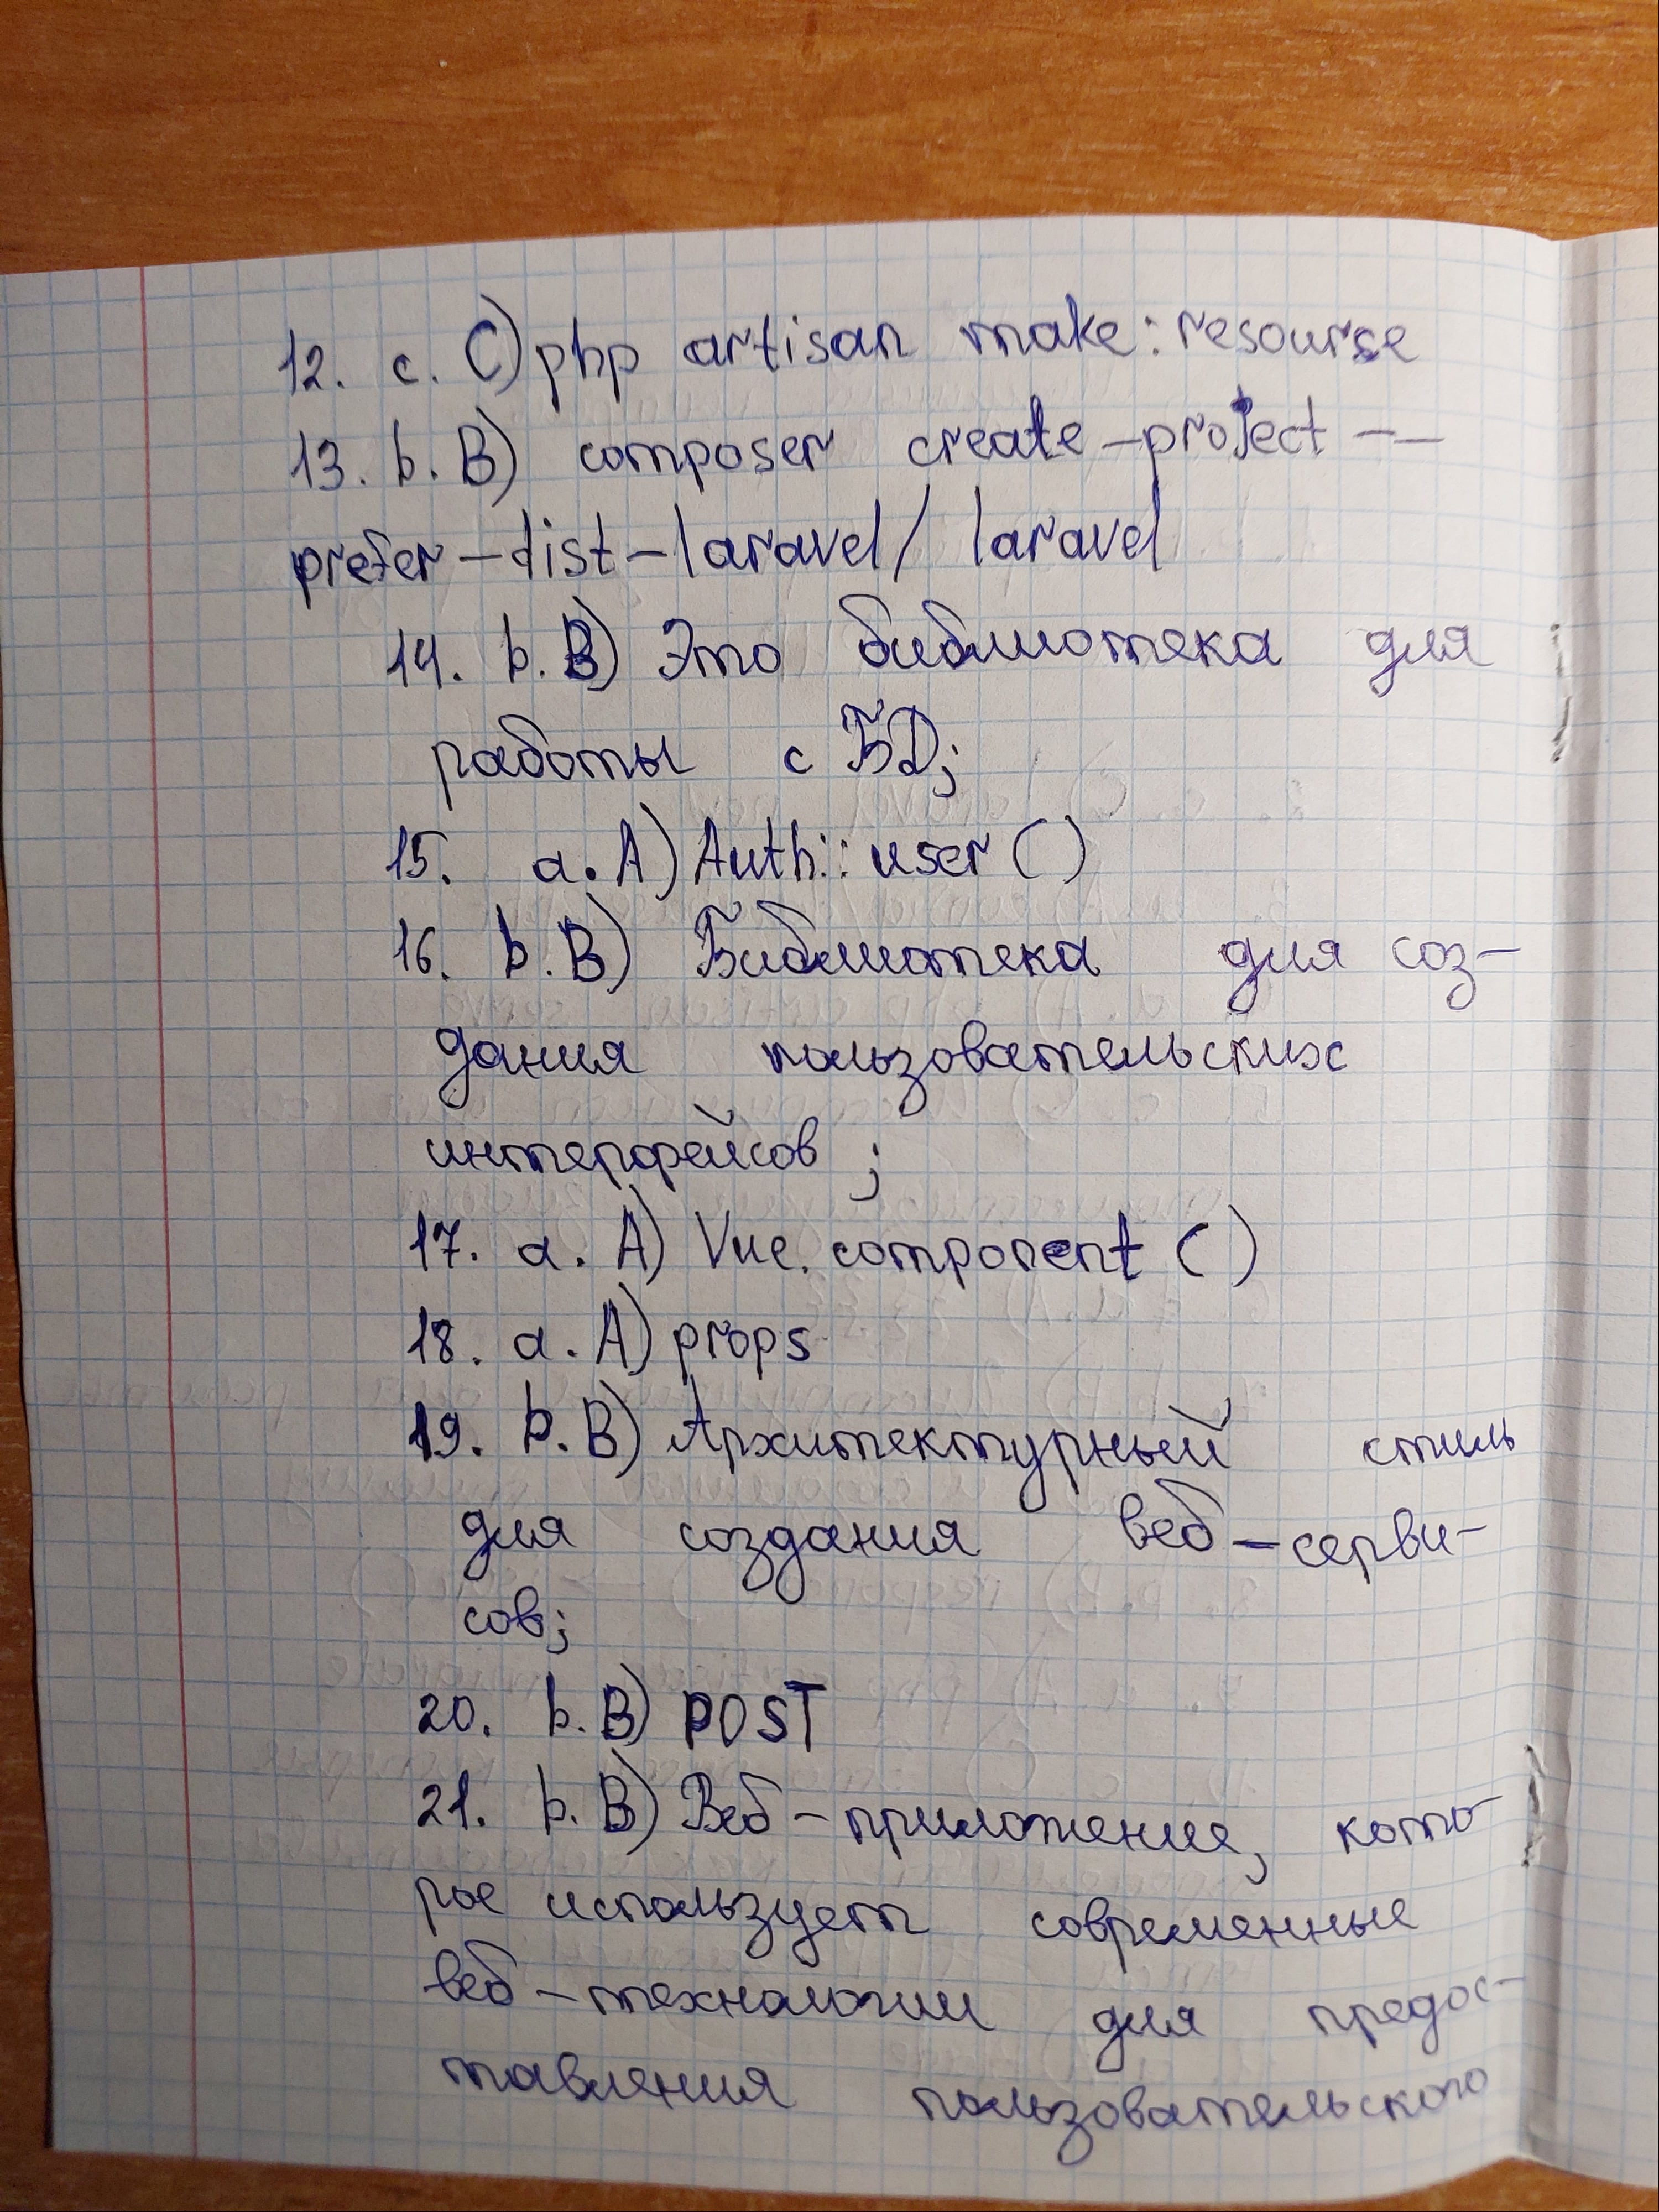 12. c. C) php artisan make: resourse
13. b. B) composer create-project --
prefer-dist-laravel/ laravel
14. b. B) Это библиотека для
работы с БД;
15. a. A) Auth:: user ( )
16. b. B) Библиотека для соз-
дания пользовательских
интерфейсов ;
17. a. A) Vue. component ( )
18. a. A) props
19. b. B) Архитектурный стиль
для создания веб-серви-
сов;
20. b. B) POST
21. b. B) Веб-приложение, кото-
рое использует современные
веб-технологии для предос-
тавления пользовательского